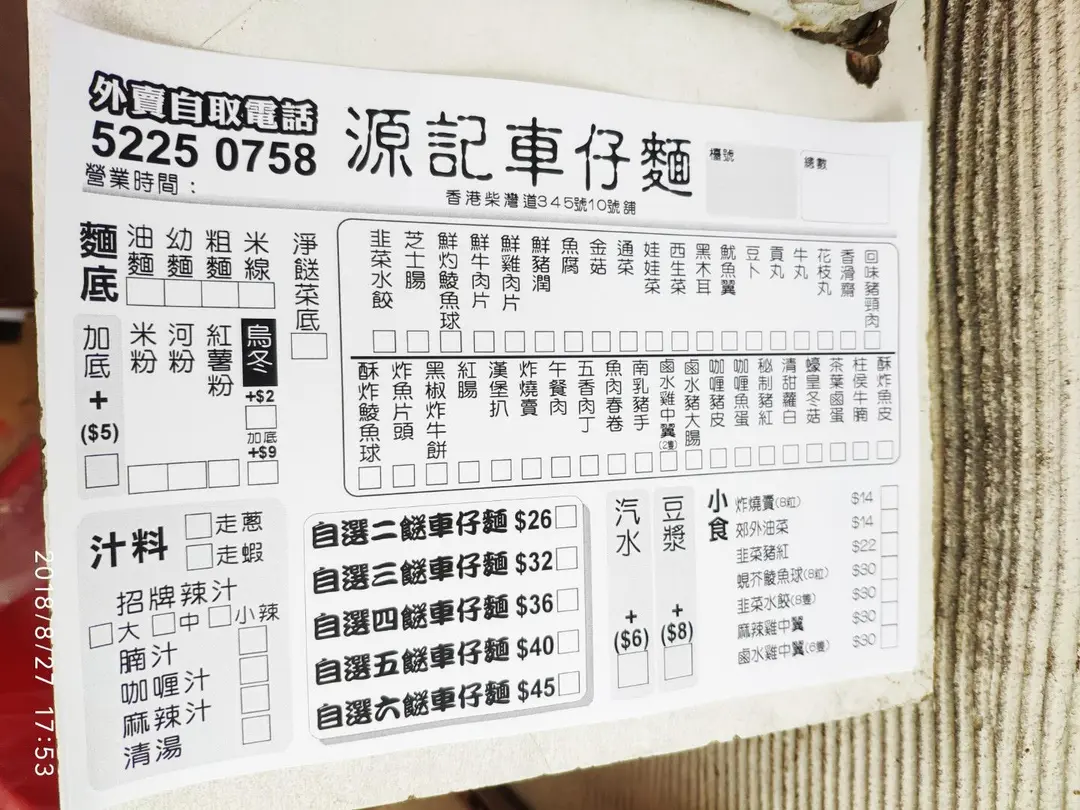 外賣自取電話
5225 0758
營業時間：
源記車仔麵
香港柴灣道345號10號舖
檯號
總數
麵底
油麵
幼麵
粗麵
米線
淨餸菜底
加底+($5)
米粉
河粉
紅薯粉
烏冬
+$2
加底
+$9
韭菜水餃
芝士腸
鮮灼鯪魚球
鮮牛肉片
鮮雞肉片
鮮豬潤
魚腐
金菇
通菜
娃娃菜
西生菜
黑木耳
魷魚翼
豆卜
貢丸
牛丸
花枝丸
香滑齋
回味豬頸肉
酥炸鯪魚球
炸魚片頭
黑椒炸牛餅
紅腸
漢堡扒
炸燒賣
午餐肉
五香肉丁
魚肉春卷
南乳豬手
鹵水雞中翼(2隻)
鹵水豬大腸
咖喱豬皮
咖喱魚蛋
秘制豬紅
清甜蘿白
蠔皇冬菇
茶葉鹵蛋
柱侯牛腩
酥炸魚皮
汁料
走蔥
走蝦
招牌辣汁
大 中 小辣
腩汁
咖喱汁
麻辣汁
清湯
自選二餸車仔麵 $26
自選三餸車仔麵 $32
自選四餸車仔麵 $36
自選五餸車仔麵 $40
自選六餸車仔麵 $45
汽水
+
($6)
豆漿
+
($8)
小食
炸燒賣(8粒) $14
郊外油菜 $14
韭菜豬紅 $22
蜆芥鯪魚球(8粒) $30
韭菜水餃(8隻) $30
麻辣雞中翼 $30
鹵水雞中翼(6隻) $30
2018/8/27 17:53